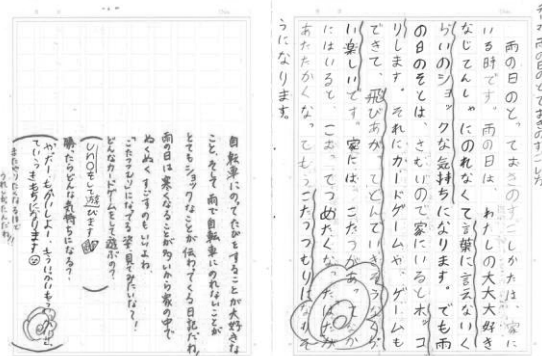 雨の日のとておきのすごしかた
雨の日のと、ておきのすごしかたは、家に
いる時です。雨の日は、わたしの大大大大好き
なじてんしゃにのれなくて言葉に言えないく
らいのショックな気持ちになります。でも雨
の日のそとは、さむいので家にいるとホッコ
リします。それにカードゲームや、ゲームも
できて、飛びあが、てとんでいきそうなくら
い楽しいです。家には、こたつがあ、
にはいると、こお、てつめたくな、た
あたたかくな、てもうこたつつむりは
うになります。
自転車にのってたびをすることが大好きな
こと、そして雨で自転車にのれないことが
とてもショックなことが伝わってくる日記だね。
雨の日は寒くなることが多いから家の中で
ぬくぬくすごすのもいいよね。
「こたつむり」になってる姿見てみたいなぁ!
どんなカードゲームをして遊ぶの?
UNOをして遊びます
勝ったらどんな気持ちになる?
やったー!もうかいしよー。
っていうきもちになります